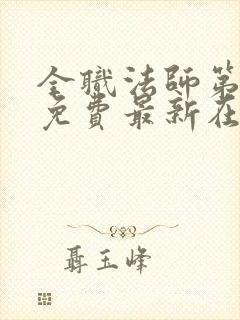 全職法師第
免費最新在
聶玉峰